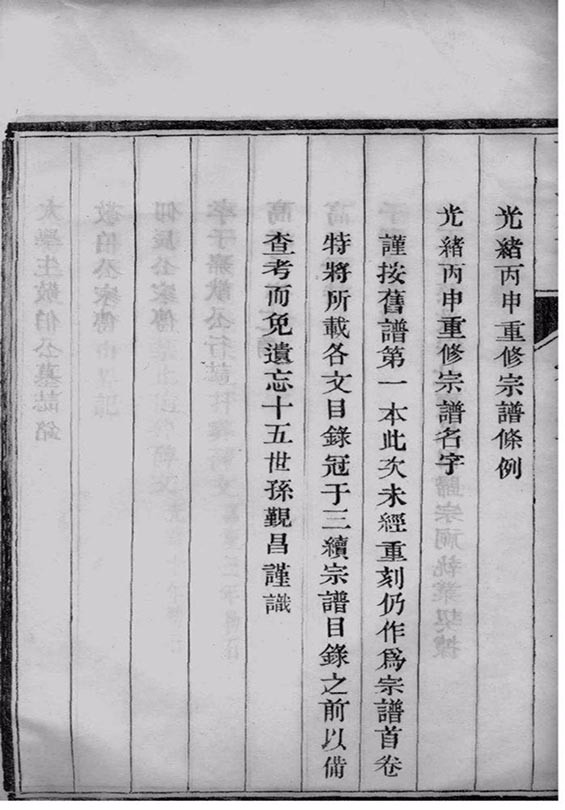 光緒丙申重修宗譜條例
光緒丙申重修宗譜名字
謹按舊譜第一本此次未經重刻仍作爲宗譜首卷
特將所載各文目錄冠于三續宗譜目錄之前以備
查考而免遺忘十五世孫覲昌謹識